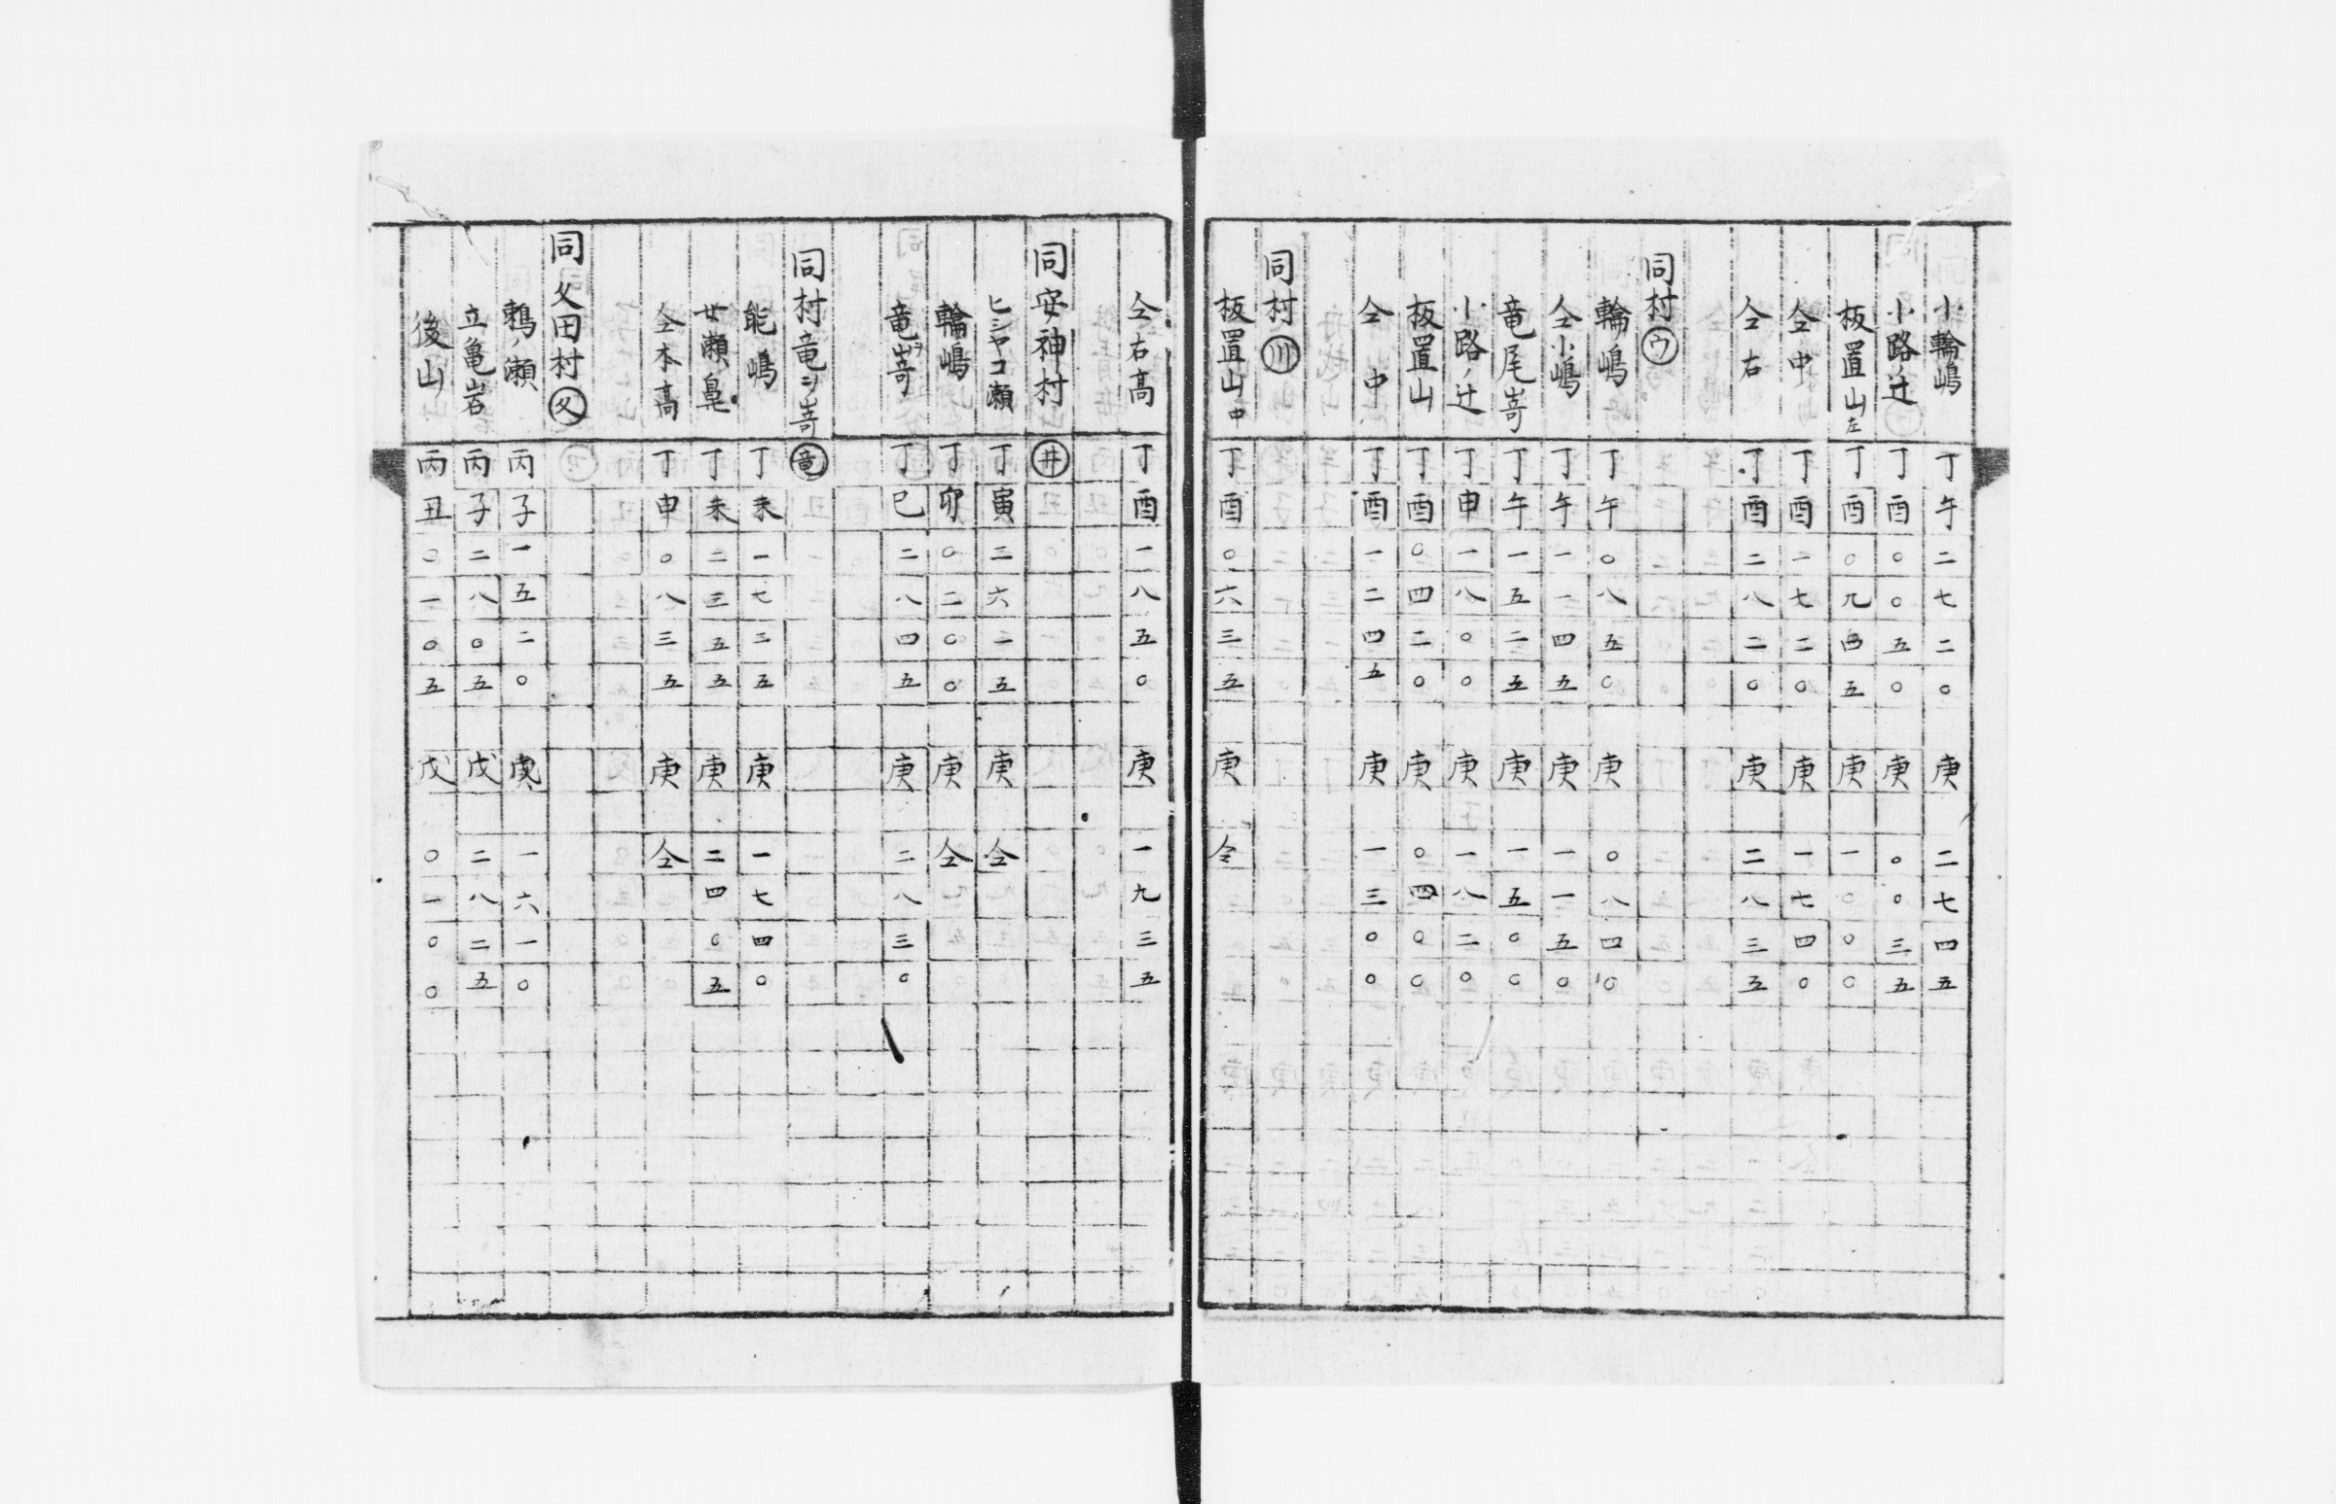 小輪嶋 丁午二七二〇 庚 二七四五
小路ノ辻 丁酉〇〇五〇 庚 〇〇三五
板置山左 丁酉〇九四五 庚 一〇〇〇
仝中 丁酉一七二〇 庚 一七四〇
仝右 丁酉二八二〇 庚 二八三五
同村㋒
輪嶋 丁午〇八五〇 庚 〇八四〇
仝小嶋 丁午一一四五 庚 一一五〇
竜尾嵜 丁午一五二五 庚 一五〇〇
小路ノ辻 丁申一八〇〇 庚 一八二〇
板置山 丁酉〇四二〇 庚 〇四〇〇
仝中 丁酉一二四五 庚 一三〇〇
同村川
板置山中 丁酉〇六三五 庚 仝
仝右高 丁酉一八五〇 庚 一九三五
同安神村 井
ヒシヤコ瀬 丁寅二六二五 庚 仝
輪嶋 丁卯〇二〇〇 庚 仝
竜ヲ嵜 丁巳二八四五 庚 二八三〇
同村竜ヲ嵜 竜
能嶋 丁未一七三五 庚 一七四〇
廿瀬鼻 丁未二三五五 庚 二四〇五
仝本高 丁申〇八三五 庚 仝
同父田村 父
鵜ノ瀬 丙子一五二〇 一六一〇
立亀岩 丙子二八〇五 戊 二八二五
後山 丙丑〇一〇五 戊 〇一〇〇